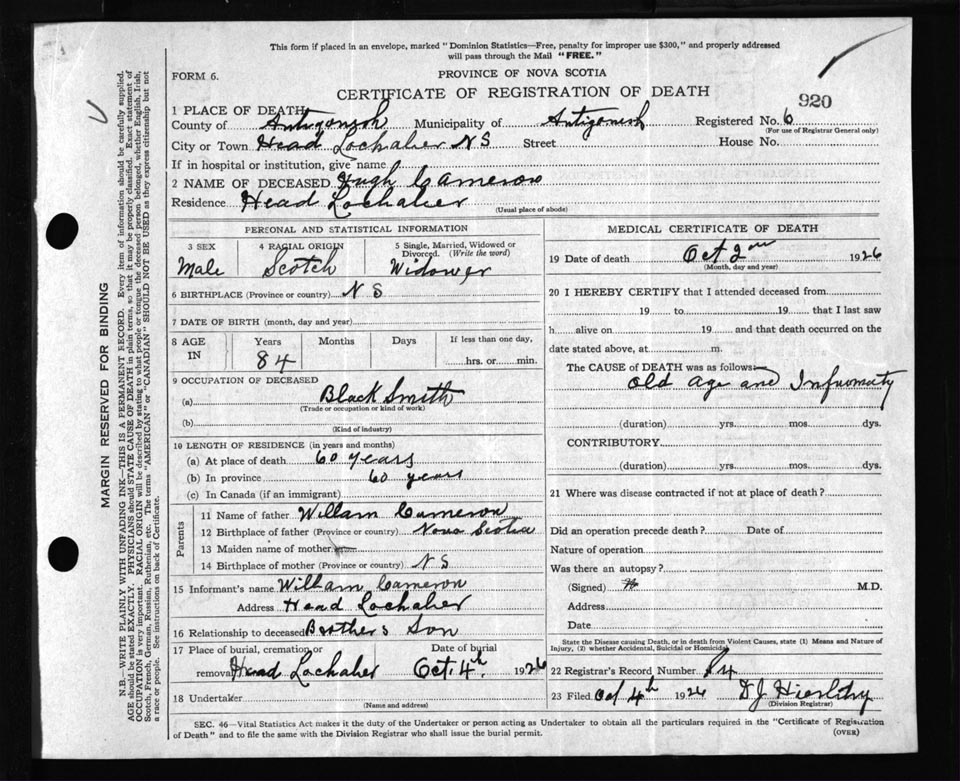 This form if placed in an envelope, marked "Dominion Statistics—Free, penalty for improper use $300," and properly addressed
will pass through the Mail "FREE."
FORM 6.
PROVINCE OF NOVA SCOTIA
CERTIFICATE OF REGISTRATION OF DEATH
920
1 PLACE OF DEATH
County of Antigonish Municipality of Antigonish Registered No. 6
(For use of Registrar General only)
City or Town Head Lochaber N S Street House No.
If in hospital or institution, give name
2 NAME OF DECEASED Hugh Cameron
Residence Head Lochaber
(Usual place of abode)
PERSONAL AND STATISTICAL INFORMATION
3 SEX 4 RACIAL ORIGIN 5 Single, Married, Widowed or Divorced. (Write the word)
Male Scotch Widower
6 BIRTHPLACE (Province or country) N S
7 DATE OF BIRTH (month, day and year)
8 AGE IN Years Months Days If less than one day,
84 hrs. or min.
9 OCCUPATION OF DECEASED
(a) Black Smith
(Trade or occupation or kind of work)
(b)
(Kind of industry)
10 LENGTH OF RESIDENCE (in years and months)
(a) At place of death 60 years
(b) In province 60 years
(c) In Canada (if an immigrant)
Parents
11 Name of father William Cameron
12 Birthplace of father (Province or country) Nova Scotia
13 Maiden name of mother
14 Birthplace of mother (Province or country) N S
15 Informant's name William Cameron
Address Head Lochaber
16 Relationship to deceased Brothers Son
17 Place of burial, cremation or removal Date of burial
Head Lochaber Oct. 4th. 1926
18 Undertaker
(Name and address)
MEDICAL CERTIFICATE OF DEATH
19 Date of death Oct 2nd 1926
(Month, day and year)
20 I HEREBY CERTIFY that I attended deceased from
19 to 19 that I last saw
h alive on 19 and that death occurred on the
date stated above, at m.
The CAUSE of DEATH was as follows:
Old age and Infirmaty
(duration) yrs. mos. dys.
CONTRIBUTORY
(duration) yrs. mos. dys.
21 Where was disease contracted if not at place of death?
Did an operation precede death? Date of
Nature of operation
Was there an autopsy?
(Signed) M.D.
Address
Date
State the Disease causing Death, or in death from Violent Causes, state (1) Means and Nature of
Injury, (2) whether Accidental, Suicidal or Homicidal
22 Registrar's Record Number
23 Filed Oct 4th 1926
(Division Registrar)
SEC. 46—Vital Statistics Act makes it the duty of the Undertaker or person acting as Undertaker to obtain all the particulars required in the "Certificate of Registration
of Death" and to file the same with the Division Registrar who shall issue the burial permit.
(OVER)
MARGIN RESERVED FOR BINDING
N.B.—WRITE PLAINLY WITH UNFADING INK—THIS IS A PERMANENT RECORD. Every item of information should be carefully supplied.
AGE should be stated EXACTLY. PHYSICIANS should STATE CAUSE OF DEATH in plain terms, so that it may be properly classified. Exact statement of
OCCUPATION is very important. RACIAL ORIGIN will be described by stating to what people or tongue the deceased person belonged, whether English, Irish,
Scotch, French, German, Russian, Ruthenian, etc. The terms "AMERICAN" or "CANADIAN" SHOULD NOT BE USED as they express citizenship but not
a race or people. See instructions on back of Certificate.